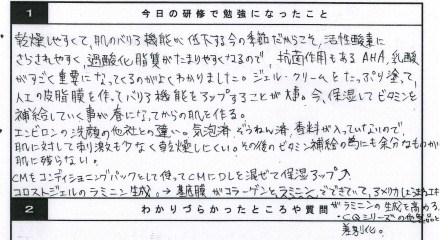 1 今日の研修で勉強になったこと
乾燥しやすくて、肌のバリア機能が低下する今の季節だからこそ、活性酸素に
さらされやすく、過酸化脂質がたまりやすくなるので、抗菌作用もあるAHA、乳酸
がすごく重要になってくるのがよくわかりました。ジェル・クリームをたっぷり塗って、
人工の皮脂膜を作ってバリア機能をアップすることが大事。今、保湿してビタミンを
補給していく事が春になってからの肌を作る。
エンビロンの洗顔の他社との違い。気泡剤、ぞうねん剤、香料が入っていないので、
肌に対して刺激も少なく乾燥しにくい。その後のビタミン補給の為にも余分なものが
肌に残らない。
CMをコンディショニングパックとして使ってCMにDLを混ぜて保湿アップ
コロストジェルのラミニン生成→基底膜がコラーゲンとラミニンでできていて、アメリカ
がラミニンの生成を高める。
2 わかりづらかったところや質問
・CQシリーズの他製品と
差別化。